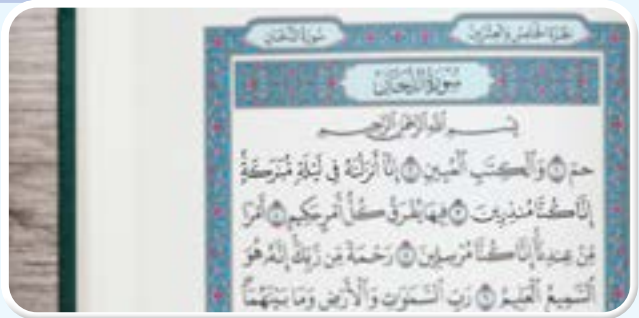 الجزء الخامس والعشرون
سورة الدخان
سُورَةُ الدُّخَانِ
بِسْمِ اللَّهِ الرَّحْمَٰنِ الرَّحِيمِ
حمٓ ۝١ وَٱلْكِتَٰبِ ٱلْمُبِينِ ۝٢ إِنَّآ أَنزَلْنَٰهُ فِى لَيْلَةٍ مُّبَٰرَكَةٍ
إِنَّا كُنَّا مُنذِرِينَ ۝٣ فِيهَا يُفْرَقُ كُلُّ أَمْرٍ حَكِيمٍ ۝٤ أَمْرًا
مِّنْ عِندِنَآ إِنَّا كُنَّا مُرْسِلِينَ ۝٥ رَحْمَةً مِّن رَّبِّكَ إِنَّهُۥ هُوَ
ٱلسَّمِيعُ ٱلْعَلِيمُ ۝٦ رَبِّ ٱلسَّمَٰوَٰتِ وَٱلْأَرْضِ وَمَا بَيْنَهُمَآ